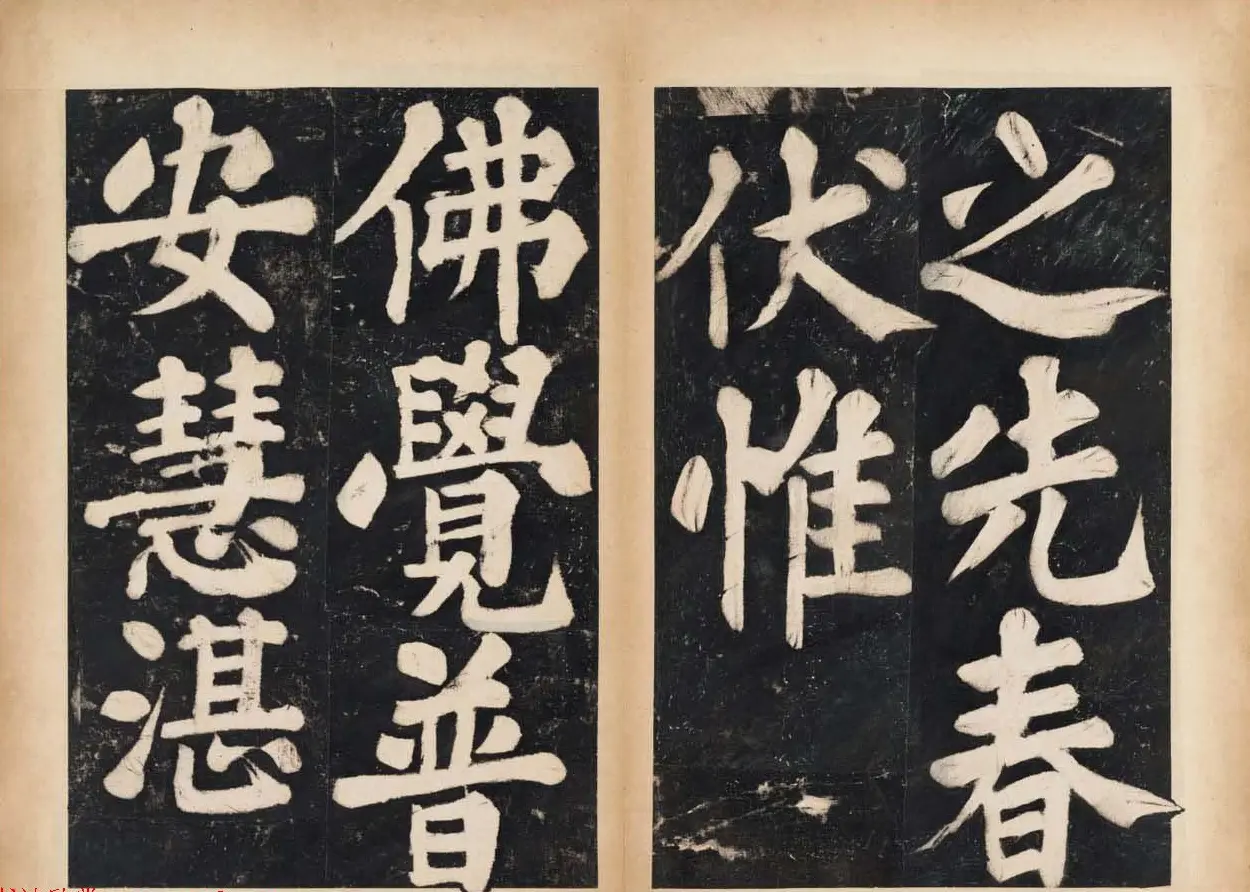 之先春
伏惟
佛覺普
安慧湛